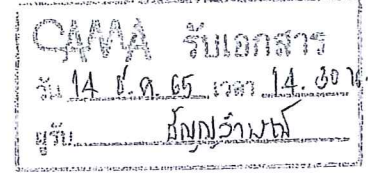 CAMA รับเอกสาร
วัน 14 ธ.ค. 65 เวลา 14.30 น.
ผู้รับ